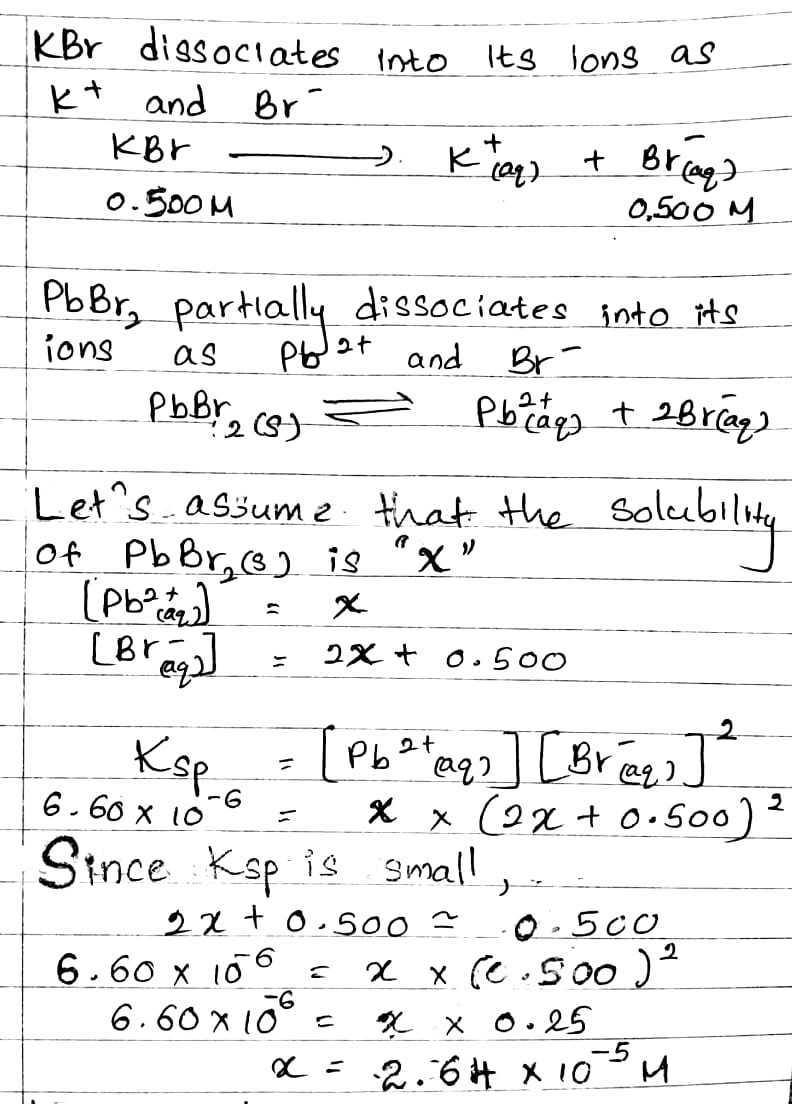 KBr dissociates into Its Ions as
K⁺ and Br⁻
KBr ⟶ K⁺(aq) + Br⁻(aq)
0.500M 0,500 M
PbBr₂ partially dissociates into its
ions as Pb²⁺ and Br⁻
PbBr₂(s) ⇌ Pb²⁺(aq) + 2Br⁻(aq)
Let's assume that the solubility
of PbBr₂(s) is "x"
[Pb²⁺(aq)] = x
[Br⁻(aq)] = 2x + 0.500
Ksp = [Pb²⁺(aq)][Br⁻(aq)]²
6.60 x 10⁻⁶ = x x (2x + 0.500)²
Since Ksp is small,
2x + 0.500 ≃ 0.500
6.60 x 10⁻⁶ = x x (0.500)²
6.60 x 10⁻⁶ = x x 0.25
x = 2.64 x 10⁻⁵ M